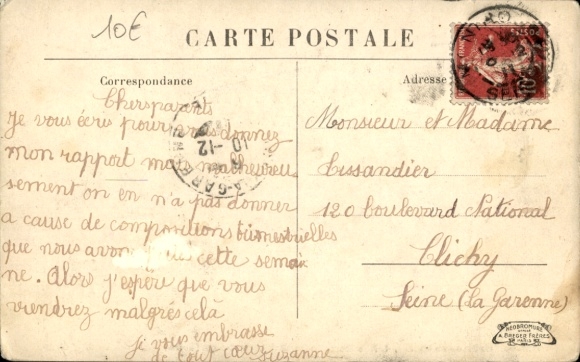 10€
CARTE POSTALE
Correspondance
Adresse
Chers parents
Je vous écris pour vous donnez
mon rapport mais malheureu
sement on en n'a pas donner
a cause de compositions trimestrielles
que nous avons cette semai
ne. Alors j'espère que vous
viendrez malgrés celà
je vous embrasse
de tout cœur Suzanne
Monsieur et Madame
Tissandier
120 boulevard National
Clichy
Seine (la Garenne)
10 -12
GARE
NEOBROMURE
A. BREGER FRÈRES
PARIS